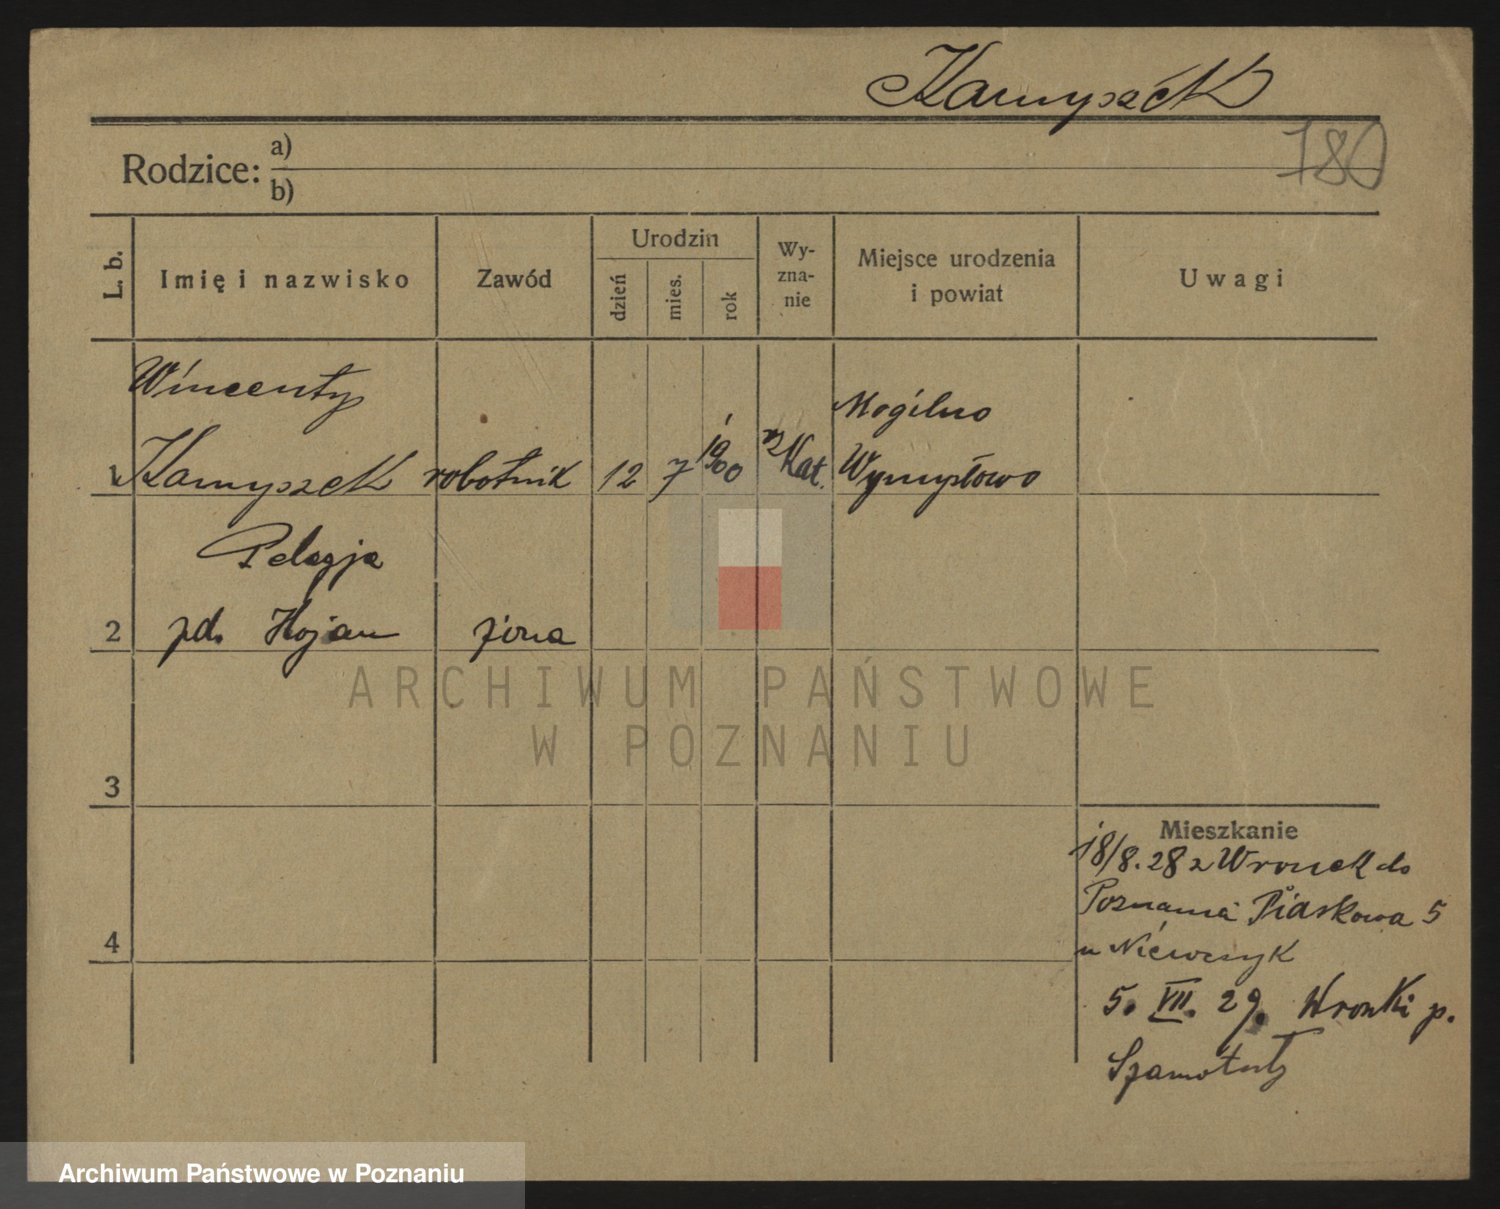 Kamyszek
180
Rodzice: a)
b)
L. b. Imię i nazwisko Zawód Urodzin dzień mies. rok Wy-zna-nie Miejsce urodzenia i powiat Uwagi
Wincenty Mogilno
1 Kamyszek robotnik 12 7 1900 rz Kat. Wymysłowo
Pelagja
2 zd. Hojan żona
ARCHIWUM PAŃSTWOWE
W POZNANIU
3
Mieszkanie
18/8.28 z Wronek do
Poznania Piaskowa 5
4
u Niewczyk
5. VII. 29. Wronki p.
Szamotuły
Archiwum Państwowe w Poznaniu